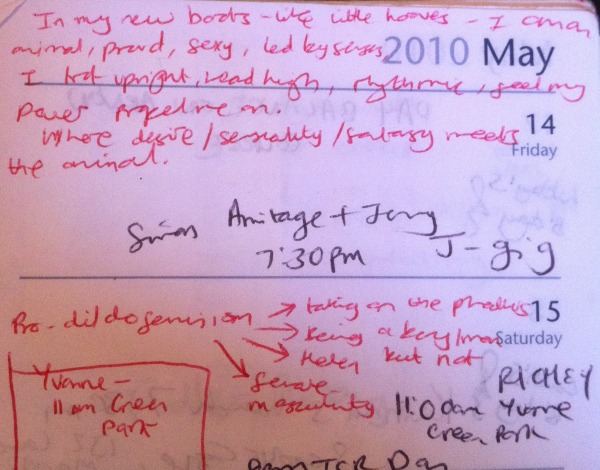 In my new boots - like little hooves - I am an
animal, proud, sexy, led by senses
2010 May
I trot upright, head high, rhythmic, feel my
power propel me on.
Where desire / sensuality / fantasy meets
the animal.
14
Friday
Simon Armitage + Jerry
7:30pm J-gig
15
Saturday
Pro-dildo feminism → taking on the phallus
→ being a boy/man
→ but not
→ masculinity
Yvonne -
11am Green
Park
RICHEY
11:00am Yvonne
Green Park